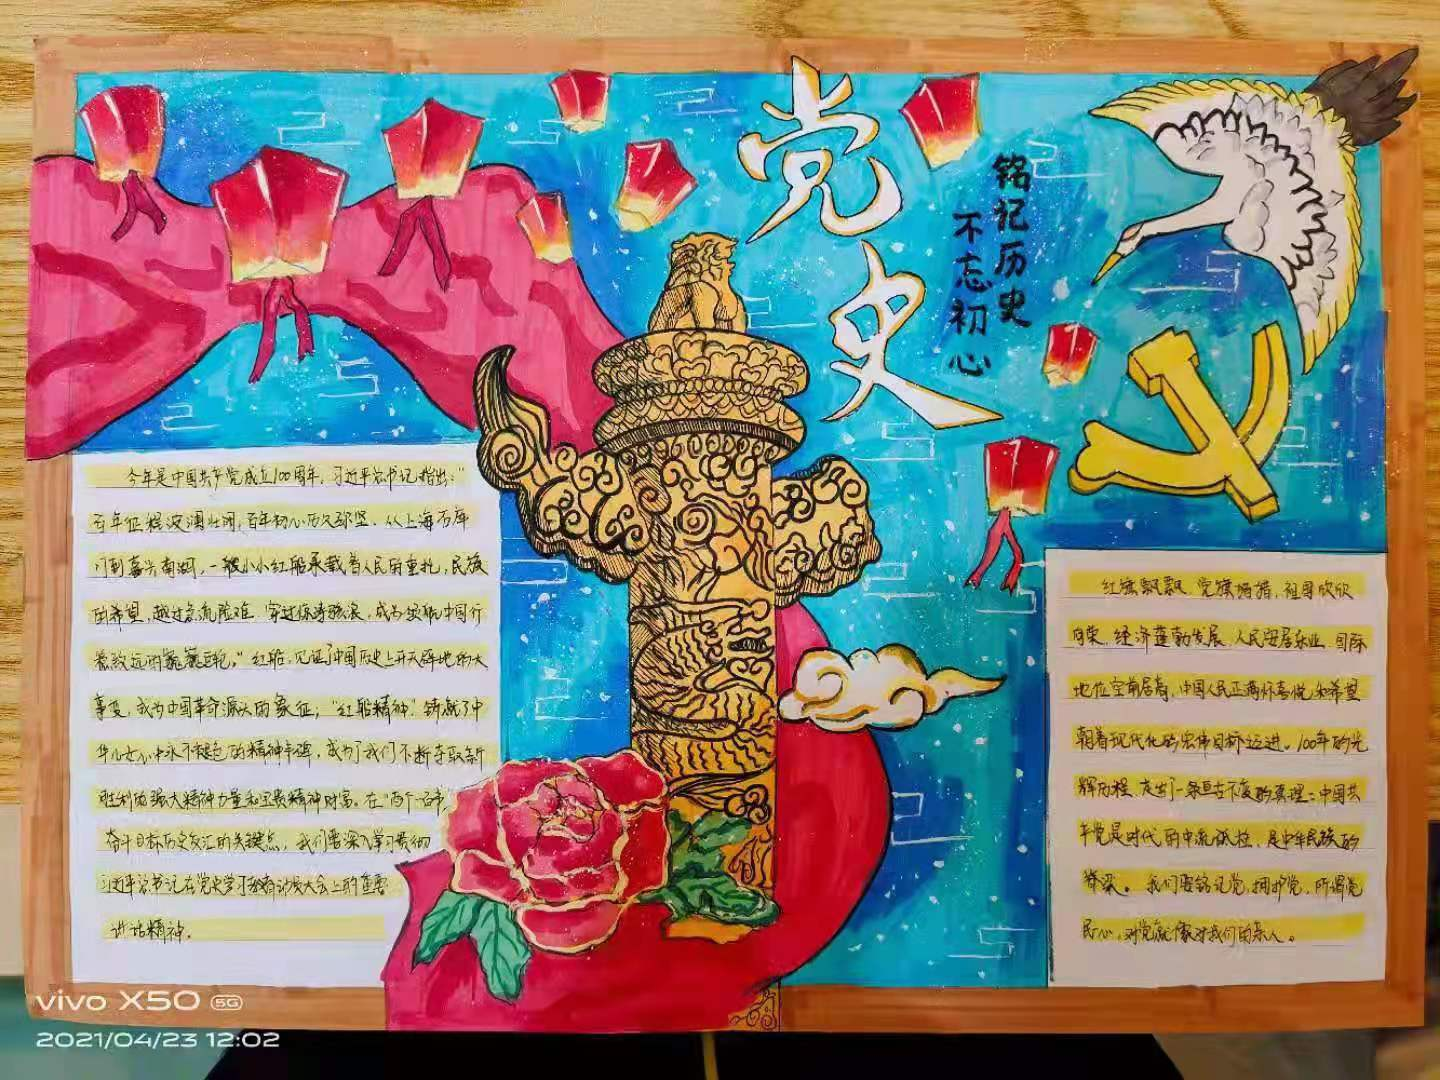 党史
铭记历史
不忘初心
今年是中国共产党成立100周年，习近平总书记指出："
百年征程波澜壮阔，百年初心历久弥坚。从上海石库
门到嘉兴南湖，一艘小小红船承载着人民的重托，民族
的希望，越过急流险滩，穿过惊涛骇浪，成为领航中国行
稳致远的巍巍巨轮。"红船，见证了中国历史上开天辟地的大
事变，成为中国革命源头的象征；"红船精神"铸就了中
华儿女心中永不褪色的精神丰碑，成为了我们不断夺取新
胜利的强大精神力量和宝贵精神财富。在"两个一百年"
奋斗目标历史交汇的关键点，我们要深入学习贯彻
习近平总书记在党史学习教育动员大会上的重要
讲话精神。
红旗飘飘，党旗招招，祖国欣欣
向荣，经济蓬勃发展，人民安居乐业，国际
地位空前提高，中国人民正满怀喜悦和希望
朝着现代化的宏伟目标迈进。100年的光
辉历程，走出了一条亘古不变的真理：中国共
产党是时代的中流砥柱，是中华民族的
脊梁。我们要铭记党，拥护党，所谓党
民心，对党就像对我们的亲人。
vivo X50 5G
2021/04/23 12:02